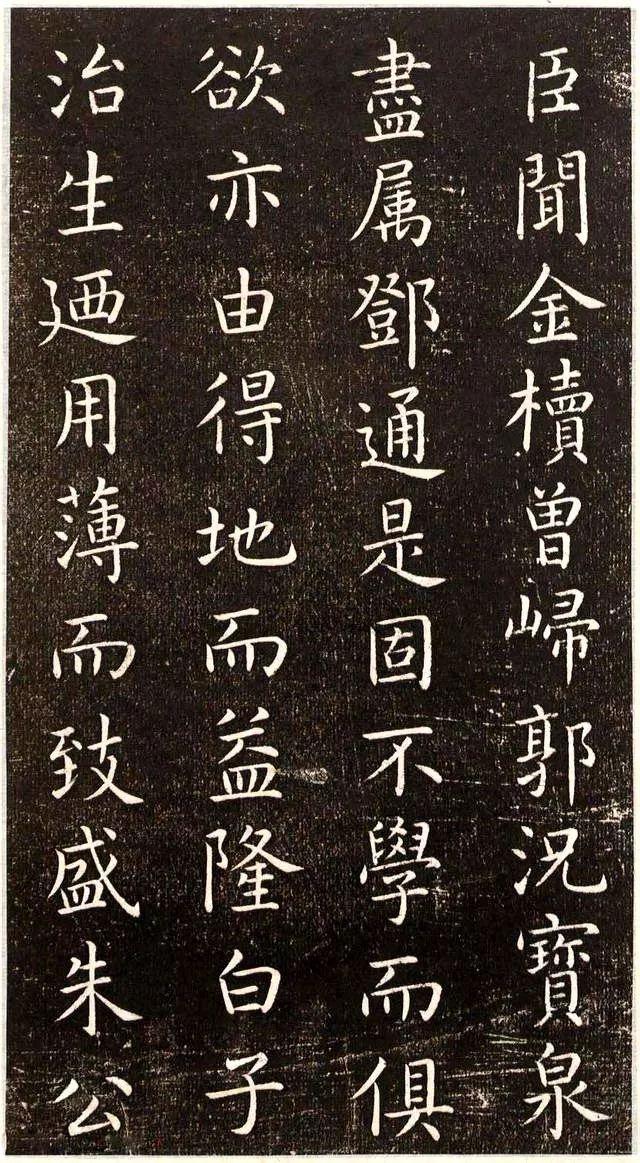 臣聞金櫝曾歸郭況寶泉
盡属鄧通是固不學而俱
欲亦由得地而益隆白子
治生廼用薄而致盛朱公